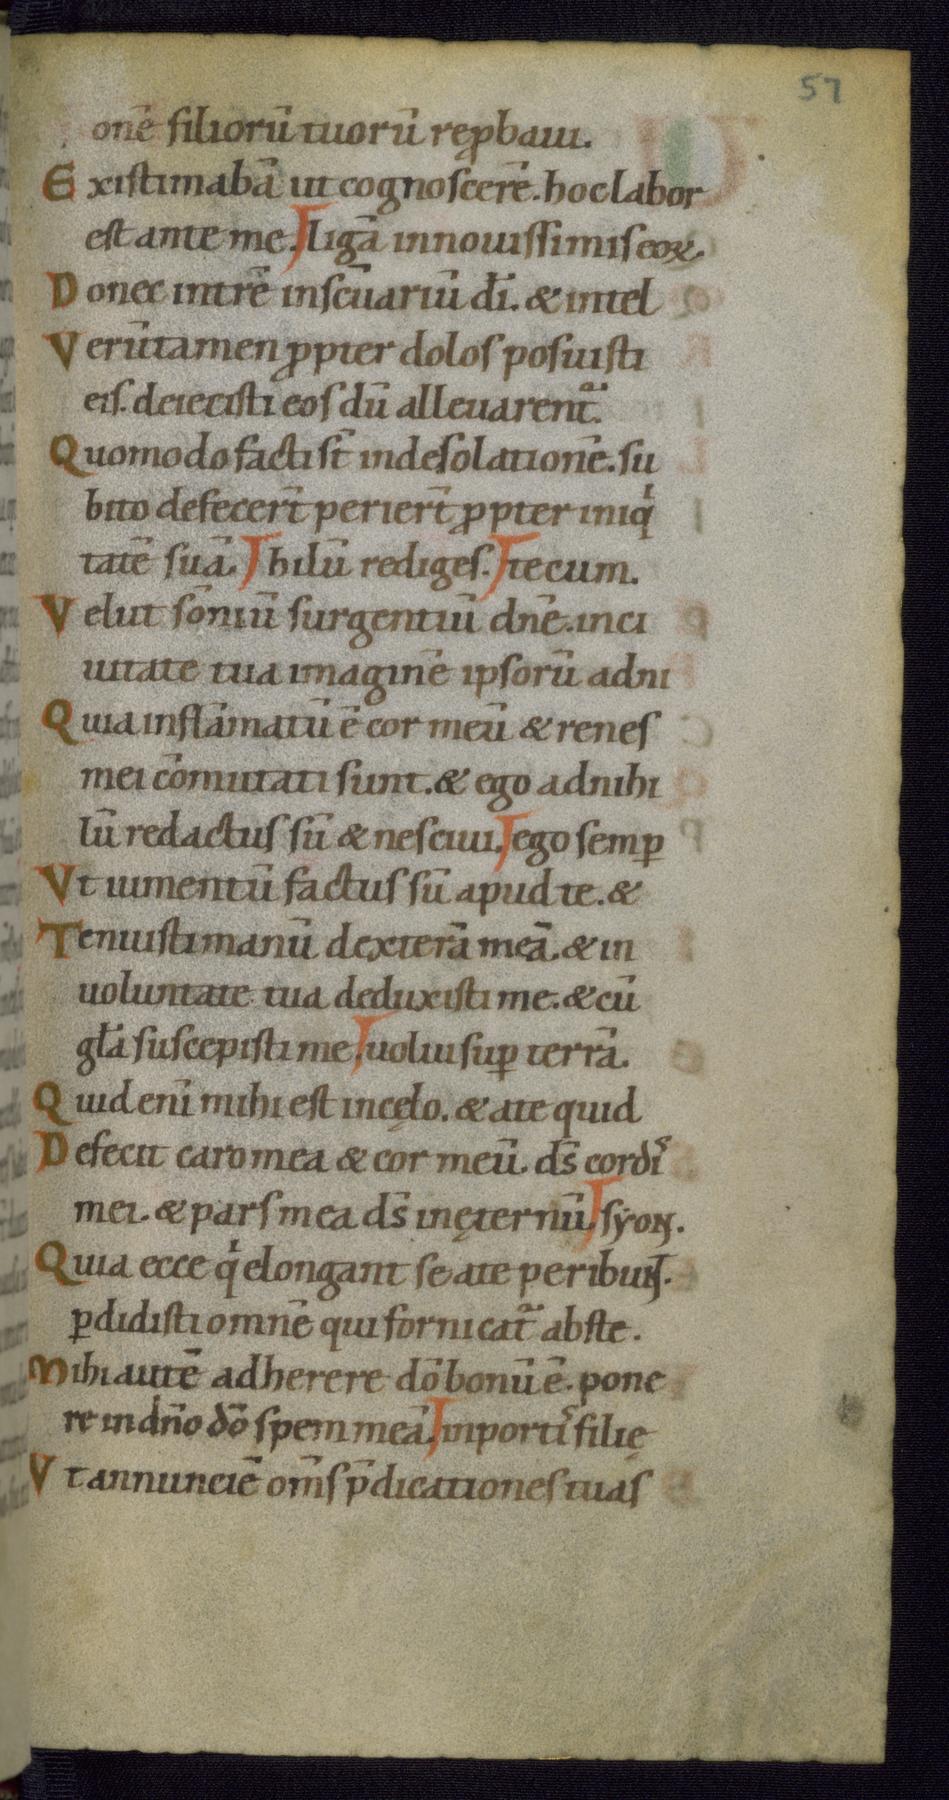 57
onē filiorū tuorū reꝓbaui.
Existimabā ut cognoscerē. hoc labor
est ante me. ligā in nouissimis eoꝝ.
Donec intrē in scūariū dı̄. & intel
Verūtamen ꝓpter dolos posuisti
eis. deiecisti eos dū alleuarent᷑.
Quomodo facti st̄ in desolationē. su
bito defecert̄ periert̄ ꝓpter iniqͥ
tatē suā. hilū rediges. tecum.
Velut sōniū surgentiū dn̄e. in ci
uitate tua imaginē ipsorū ad ni
Quia inflāmatū ē cor meū & renes
mei cōmutati sunt. & ego ad nihi
lū redactus sū & nesciui. ego semꝑ
Vt iumentū factus sū apud te. &
Tenuisti manū dexterā meā. & in
uoluntate tua deduxisti me. & cū
gl̄a suscepisti me. uolui suꝑ terrā.
Quid enī mihi est in cęlo. & a te quid
Defecit caro mea & cor meū. ds̄ cordis
mei. & pars mea ds̄ in ęternū. syon.
Quia ecce qͥ elongant se a te peribunt.
ꝑdidisti omnē qui fornicat᷑ abs te.
Mihi autē adherere dō bonū ē. pone
re in dn̄o dō spem meā. in portis filię
Vt annunciē om̄s p̄dicationes tuas